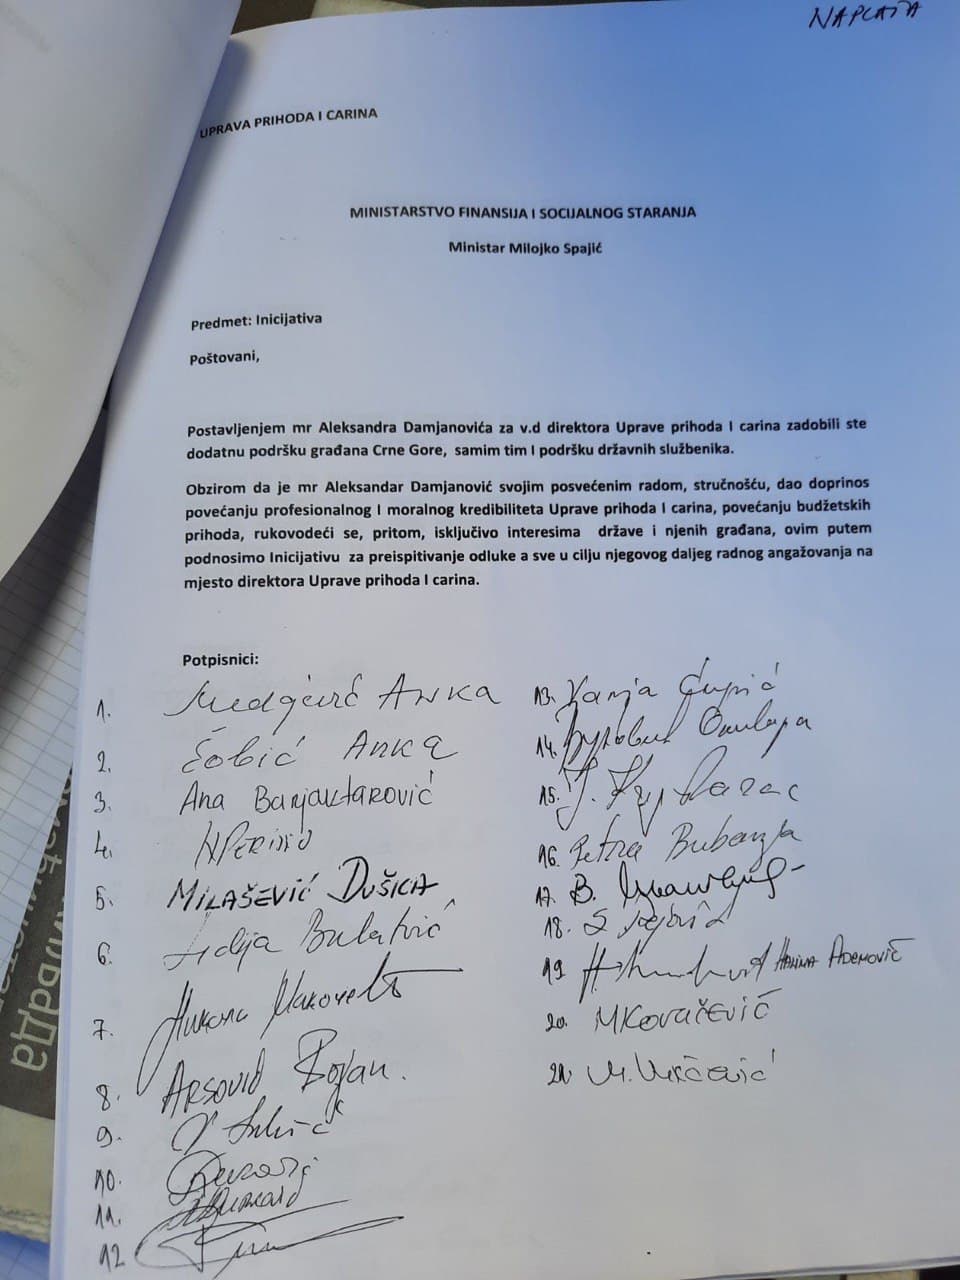 NAPLATA
UPRAVA PRIHODA I CARINA
MINISTARSTVO FINANSIJA I SOCIJALNOG STARANJA
Ministar Milojko Spajić
Predmet: Inicijativa
Poštovani,
Postavljenjem mr Aleksandra Damjanovića za v.d direktora Uprave prihoda I carina zadobili ste
dodatnu podršku građana Crne Gore, samim tim I podršku državnih službenika.
Obzirom da je mr Aleksandar Damjanović svojim posvećenim radom, stručnošću, dao doprinos
povećanju profesionalnog I moralnog kredibiliteta Uprave prihoda I carina, povećanju budžetskih
prihoda, rukovodeći se, pritom, isključivo interesima države i njenih građana, ovim putem
podnosimo Inicijativu za preispitivanje odluke a sve u cilju njegovog daljeg radnog angažovanja na
mjesto direktora Uprave prihoda I carina.
Potpisnici:
1. Anka
2. Šobić Anka
3. Ana Banjaktarović
4.
5. MILAŠEVIĆ DUŠICA
6. Bulatović
7. Никола
8. ARSOVIĆ Bojan.
9.
10.
11.
12
13. Vanja Ćupić
14.
15.
16. Petra Bubanja
17. В.
18. S
19 HANIMA ADEMOVIĆ
20. MKovačević
21. M.
влада